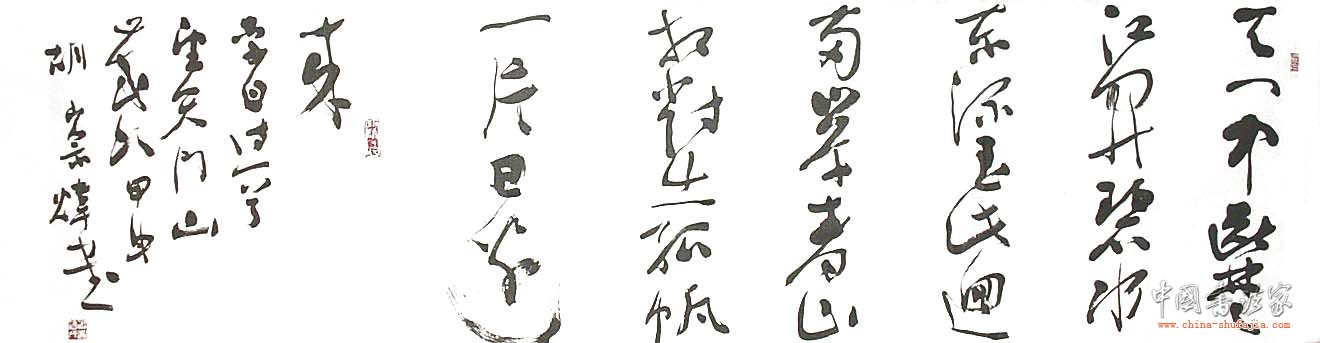 天门中断楚
江開碧水
东流至此迴
兩岸青山
相对出孤帆
一片日边
来
李白诗一首
望天门山
甲申
胡崇煒书
中國書法家
www.china-shufajia.com